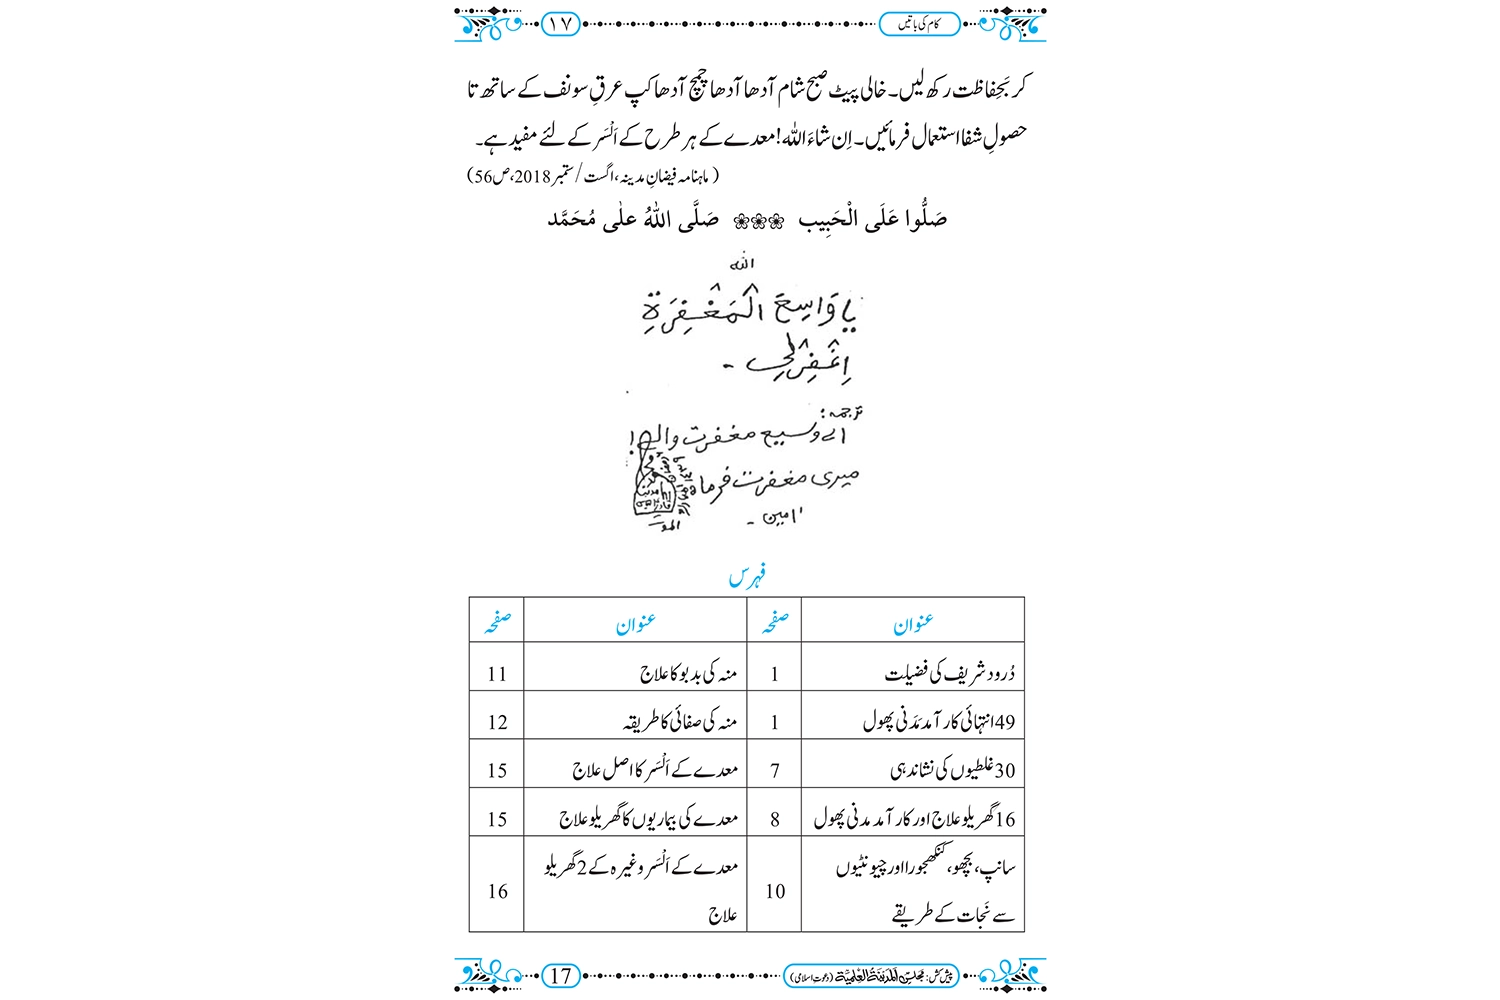 کام کی باتیں
١٧
کر بَحِفاظت رکھ لیں۔ خالی پیٹ صبح شام آدھا آدھا چمچ آدھا کپ عرقِ سونف کے ساتھ تا
حصولِ شفا استعمال فرمائیں۔ اِن شاءَ اللہ! معدے کے ہر طرح کے اَلْسَر کے لئے مفید ہے۔
(ماہنامہ فیضانِ مدینہ، اگست/ستمبر 2018، ص56)
صَلُّوا عَلَى الْحَبِيب ❀❀❀ صَلَّى اللهُ علٰى مُحَمَّد
اللہ
یا وَاسِعَ الْمَغْفِرَةِ
اِغْفِرْلِی -
ترجمہ:
اے وسیع مغفرت والے!
میری مغفرت فرما
امین -
فہرس
عنوان صفحہ عنوان صفحہ
دُرود شریف کی فضیلت 1 منہ کی بدبو کا علاج 11
49 انتہائی کار آمد مَدَنی پھول 1 منہ کی صفائی کا طریقہ 12
30 غلطیوں کی نشاندہی 7 معدے کے اَلْسَر کا اصل علاج 15
16 گھریلو علاج اور کار آمد مدنی پھول 8 معدے کی بیماریوں کا گھریلو علاج 15
سانپ، بچھو، کنکھجورا اور چیونٹیوں
سے نَجات کے طریقے 10 معدے کے اَلْسَر وغیرہ کے 2 گھریلو
علاج 16
پیش کش: مجلس المدینۃ العلمیۃ (دعوتِ اسلامی)
17